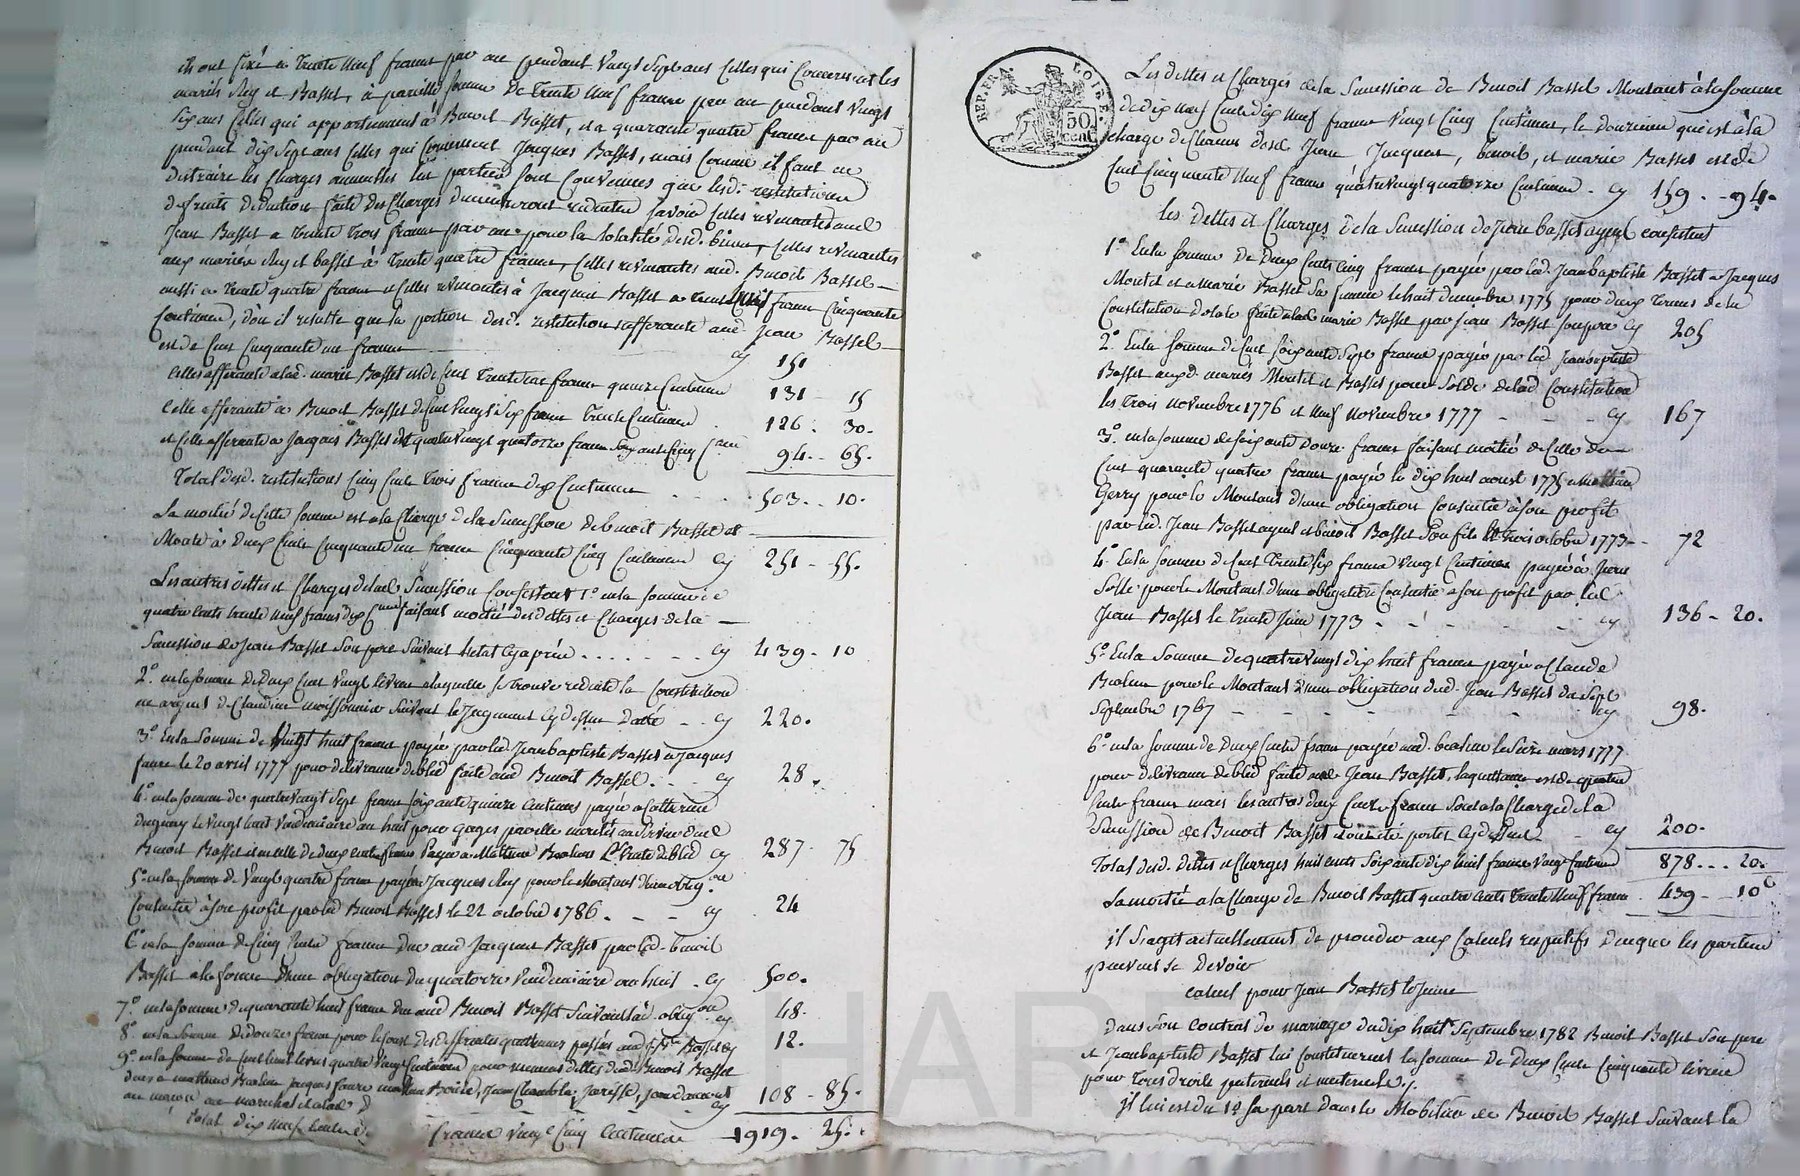 ils ont fixé à trente neuf francs par an pendant vingt sept ans celles qui concernent les
mariés Rey et Basset, à pareille somme de trente neuf francs par an pendant vingt
six ans celles qui appartiennent à Benoit Basset, et a quarante quatre francs par an
pendant dix sept ans celles qui concernent Jacques Basset, mais comme il faut en
distraire les charges annuelles les parties sont convenues que lesd. restitutions
de fruits déduction faite des charges demeureront réduites savoir celles revenantes aud
Jean Basset a trente trois francs par an pour la totalité desd. biens, celles revenantes
aux mariés Rey et basset à trente quatre francs, celles revenantes aud. Benoit Basset
aussi a trente quatre francs et celles revenantes à Jacques Basset a francs cinquante
centimes, d'où il resulte que la portion desd. restitutions afferante aud Jean Basset
est de cent cinquante un francs cy 151
celles afferante a lad. marie Basset est de cent trente un francs quinze centimes 131 - 15
celle afferante a Benoit Basset de cent vingt six francs trente centimes 126 . 30.
et celle afferante a Jacques Basset est quatre vingt quatorze francs soixante cinq c.mes 94 .. 65.
Total desd. restitutions cinq cents trois francs dix centimes . . . . 503 .. 10.
La moitié de cette somme est a la charge de la succession de benoit Basset et
monte à deux cents cinquante un francs cinquante cinq centimes cy 251 - 55.
Les autres dettes et charges de lad. succession consistent 1º en la somme de
quatre cents trente neuf francs dix c.mes faisant moitié des dettes et charges de la
succession de Jean Basset son pere suivant l'etat cy après . . . . . cy 439 - 10
2º. en la somme de deux cent vingt livres a laquelle se trouve reduite la constitution
en argent de Claudine moissonnier suivant le jugement cy dessus daté - . cy 220.
3º En la somme de vingt huit francs payée par led. Jean baptiste Basset a Jacques
faure le 20 avril 1777 pour délivrance de bled faite aud Benoit Basset . . cy 28.
4º. en la somme de quatre vingt sept francs soixante quinze centimes payée a Catherine
duguey le vingt huit vendemiaire an huit pour gages par elle merités au service dud
Benoit Basset et en celle de deux cents francs payée a Mathieu Brahen p.r vente de bled cy 287 - 75
5º. en la somme de vingt quatre francs payée a Jacques Rey pour le montant d'une oblig.on
consentie à son profit par led Benoit Basset le 22 octobre 1786 . - - cy . 24
6º en la somme de cinq cents francs due aud Jacques Basset par led. benoit
Basset à la forme d'une obligation du quatorze vendemiaire an huit . cy 500.
7º en la somme de quarante huit francs due aud Benoit Basset suivant lad. oblig.on cy 48.
8º. en la somme de douze francs pour le cout des differentes quittances passées aud Basset cy 12.
9º en la somme de cent huit livres quatre vingt centimes pour menues dettes dud Benoit Basset
dues a mathieu Brahen jacques faure
au maçon au marechal et a lad 108 - 85.
Total dix neuf cents d. francs vingt cinq centimes 1919 . 25.
REP. FRA. LOIRE. 50 cent
Les dettes et charges de la succession de Benoit Basset montant à la somme
de dix neuf cents dix neuf francs vingt cinq centimes, le douzieme qui est à la
charge de chacun desd. Jean, Jacques, benoit, et marie Basset est de
cent cinquante neuf francs quatre vingt quatorze centimes . cy 159 . - 94.
les dettes et charges de la succession de Jean basset ayeul consistent
1º En la somme de deux cents cinq francs payée par led. Jean baptiste Basset a Jacques
Montet et a Marie Basset sa femme le huit decembre 1775 pour deux termes de la
constitution dotale faite a lad marie Basset par Jean Basset son pere cy 205
2º En la somme de cent soixante sept francs payée par led Jean baptiste
Basset auxd. mariés Montet et Basset pour solde de lad Constitution
les trois novembre 1776 et neuf novembre 1777 - - - cy 167
3º. en la somme de soixante douze francs faisant moitié de celle de
cent quarante quatre francs payée le dix huit aoust 1775 a Mathieu
Gerry pour le montant d'une obligation consentie à son profit
par led. Jean Basset ayeul et benoit Basset son fils le trois octobre 1773 - - 72
4º. En la somme de cent trente six francs vingt centimes payée à
Solle pour le montant d'une obligation consentie a son profit par led
Jean Basset le trente Juin 1773 - - - - cy 136 - 20.
5º En la somme de quatre vingt dix huit francs payée a Claude
Brahen pour le montant d'une obligation dud. Jean Basset du sept
septembre 1767 - - - - - cy 98.
6º en la somme de deux cents francs payée aud brahen le seize mars 1777
pour délivrance de bled faite aud Jean Basset, la quittance est de quatre
cents francs mais les autres deux cents francs sont a la charge de la
succession de Benoit Basset et ont été portés cy dessus - cy 200.
Total desd. dettes et charges huit cents soixante dix huit francs vingt centimes 878 ... 20.
La moitié a la charge de Benoit Basset quatre cents trente neuf francs . 439 - . 10 c
il s'agit actuellement de proceder aux calculs respectifs de ce que les parties
peuvent se devoir
calcul pour Jean Basset le jeune
dans son contrat de mariage du dix huit septembre 1782 Benoit Basset son pere
et Jean baptiste Basset lui constituerent la somme de deux cents cinquante livres
pour tous droits paternels et maternels.
il lui est du 1º sa part dans le mobilier de Benoit Basset suivant la